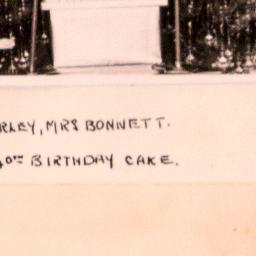 RLEY, MRS BONNETT.
40TH BIRTHDAY CAKE.